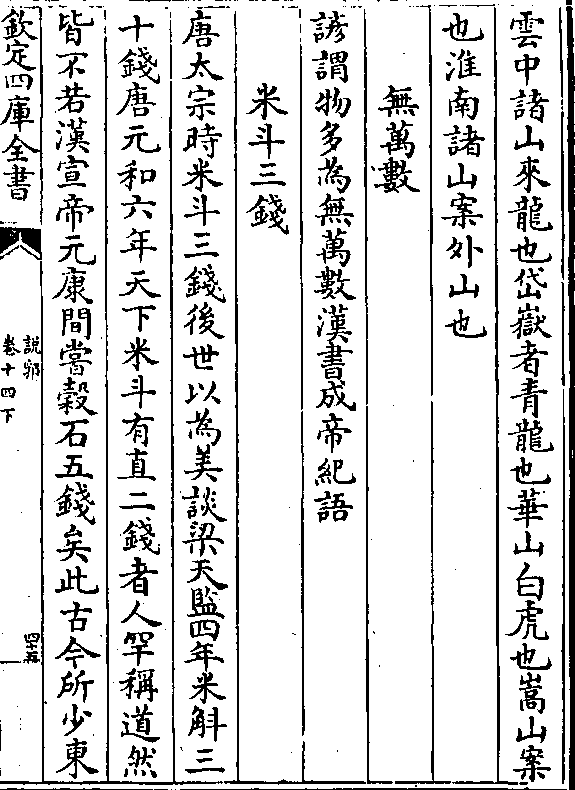 雲中諸山來龍也岱嶽者青龍也華山白虎也嵩山案
也淮南諸山案外山也
無萬數
諺謂物多為無萬數漢書成帝紀語
米斗三錢
唐太宗時米斗三錢後世以為美談梁天監四年米斛三
十錢唐元和六年天下米斗有直二錢者人罕稱道然
皆不若漢宣帝元康間嘗穀石五錢矣此古今所少東
欽定四庫全書
說郛
卷十四下
四十五